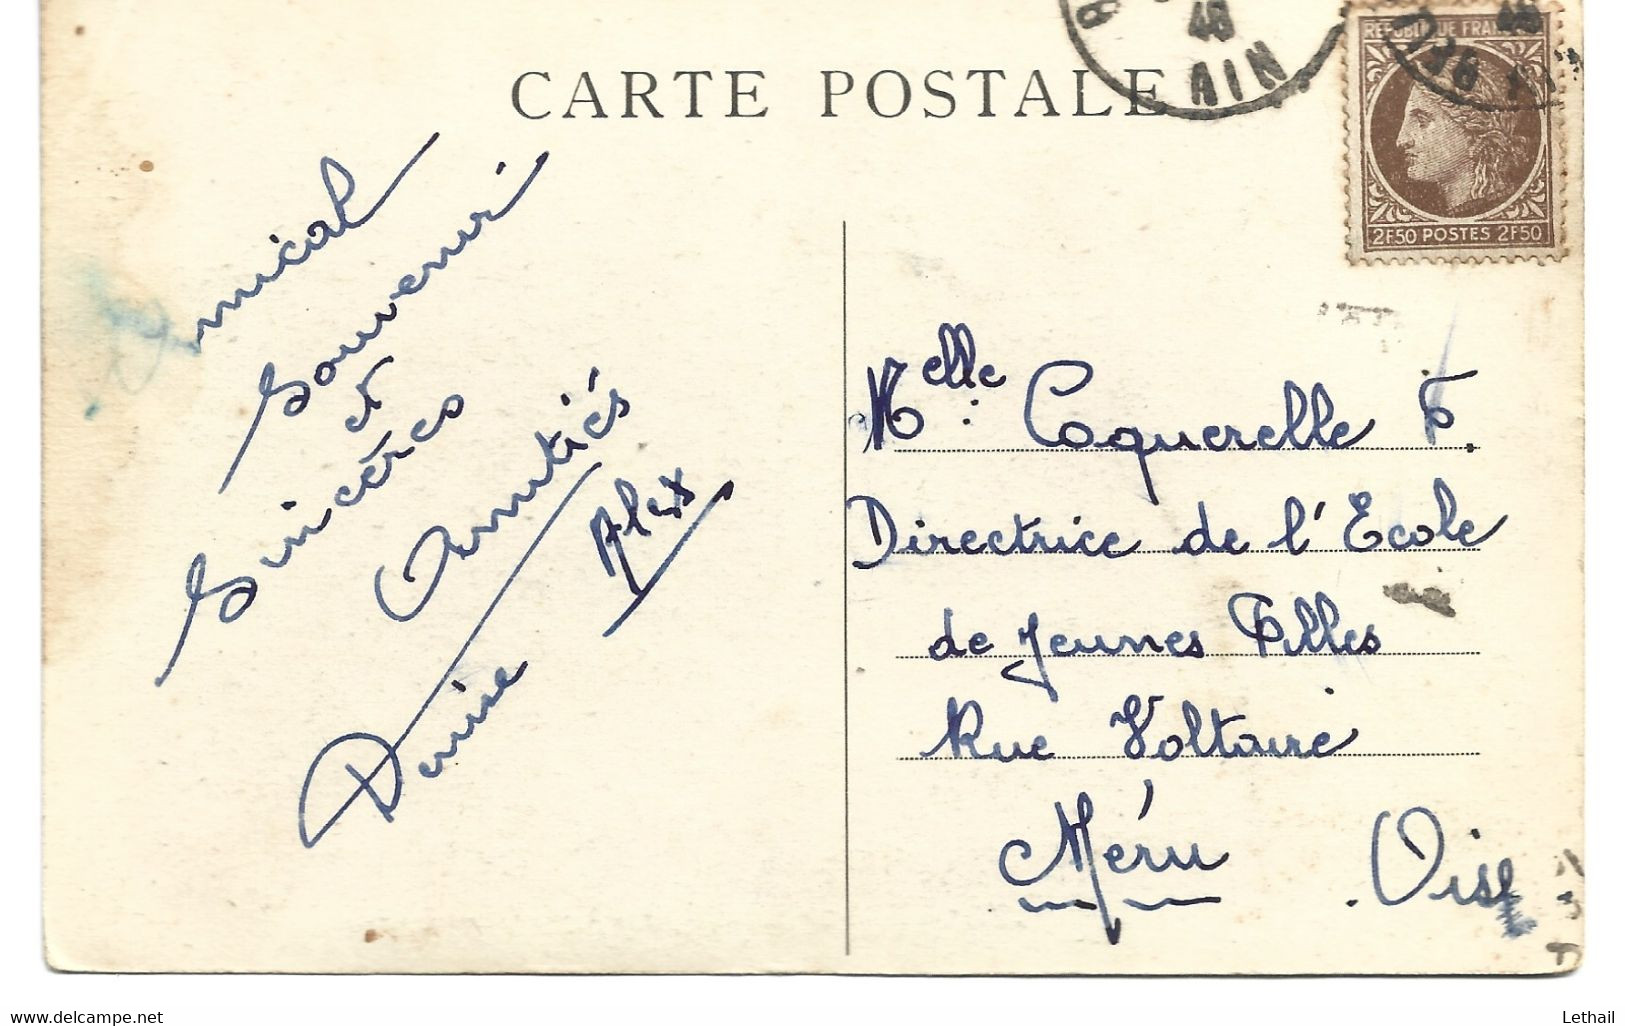 CARTE POSTALE
46
AIN
REPUBLIQUE FRAN
2F50 POSTES 2F50
Amical
Souvenir
et
Sincères
Amitiés
Denise
Alex
Melle Coquerelle F.
Directrice de l'Ecole
de Jeunes Filles
Rue Voltaire
Méru . Oise
www.delcampe.net
Lethail